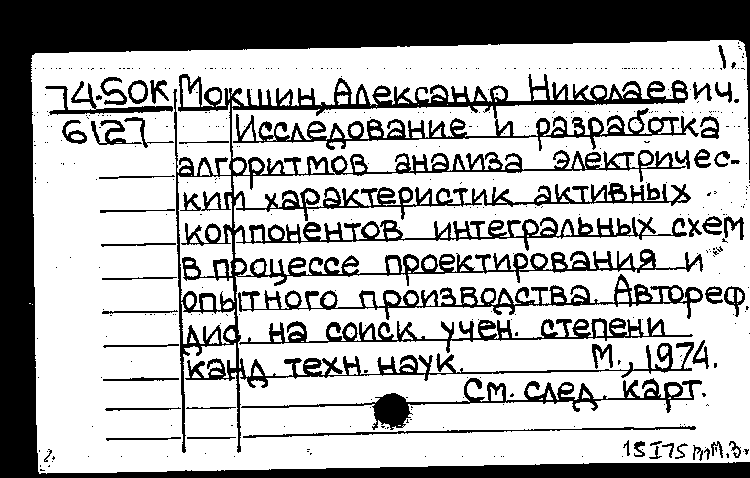 1.
74-5OK Мокшин, Александр Николаевич.
6127 Исследование и разработка
алгоритмов анализа электричес-
ким характеристик активных
компонентов интегральных схем
в процессе проектирования и
опытного производства. Автореф.
дис. на соиск. учен. степени
канд. техн. наук. М., 1974.
См. след. карт.
2.